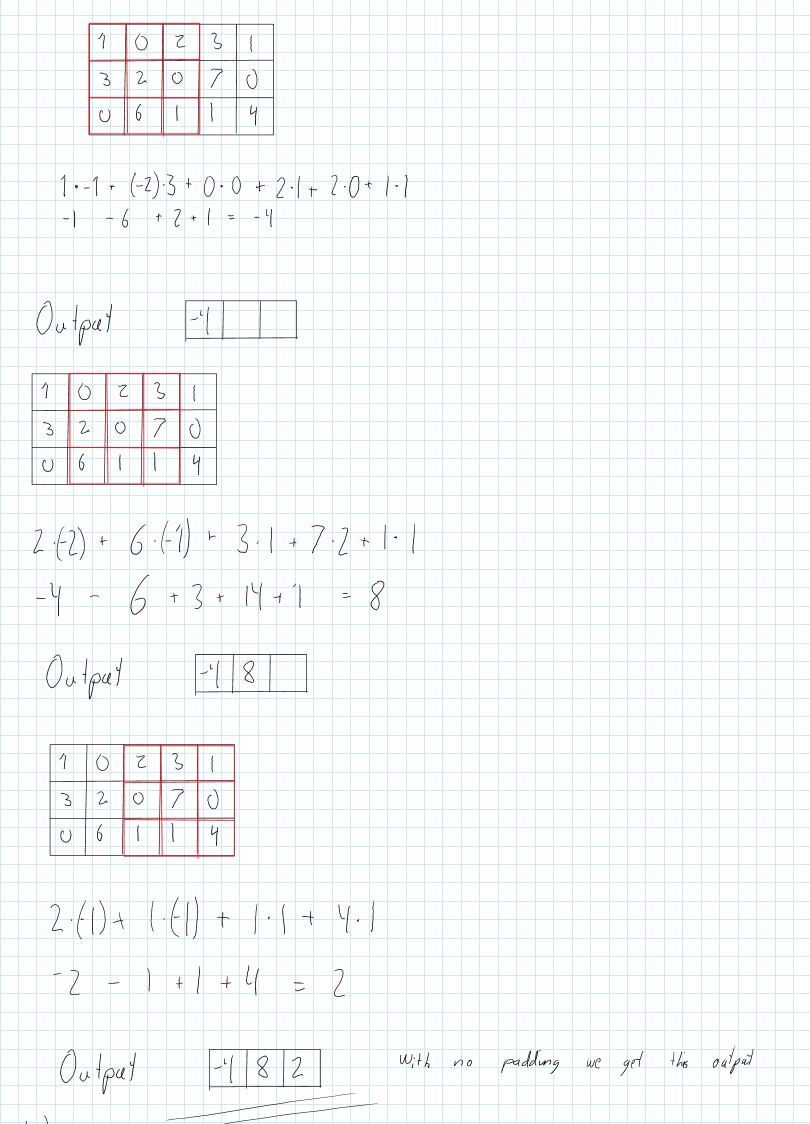 1 0 2 3 1
3 2 0 7 0
0 6 1 1 4
1·-1 + (-2)·3 + 0·0 + 2·1 + 2·0 + 1·1
-1 - 6 + 2 + 1 = -4
Output -4
1 0 2 3 1
3 2 0 7 0
0 6 1 1 4
2·(-2) + 6·(-1) + 3·1 + 7·2 + 1·1
-4 - 6 + 3 + 14 + 1 = 8
Output -4 8
1 0 2 3 1
3 2 0 7 0
0 6 1 1 4
2·(-1) + 1·(-1) + 1·1 + 4·1
-2 - 1 + 1 + 4 = 2
Output -4 8 2 With no padding we get this output